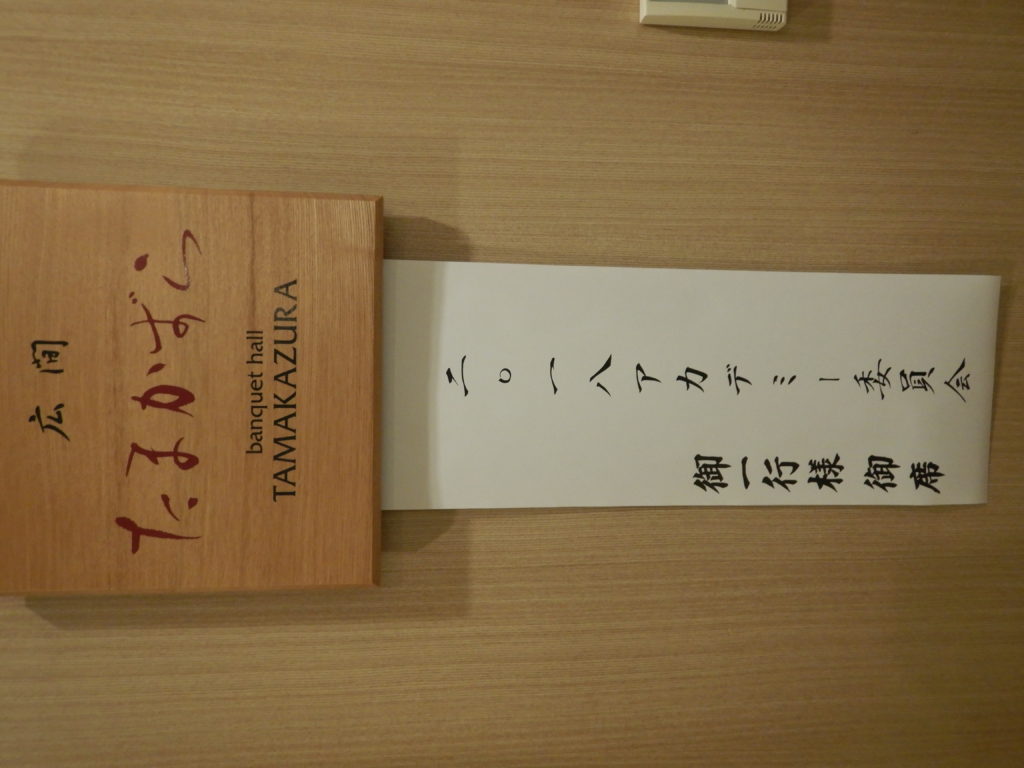 広間
たまかずら
banquet hall
TAMAKAZURA
二〇一八アカデミー委員会
御一行様 御席